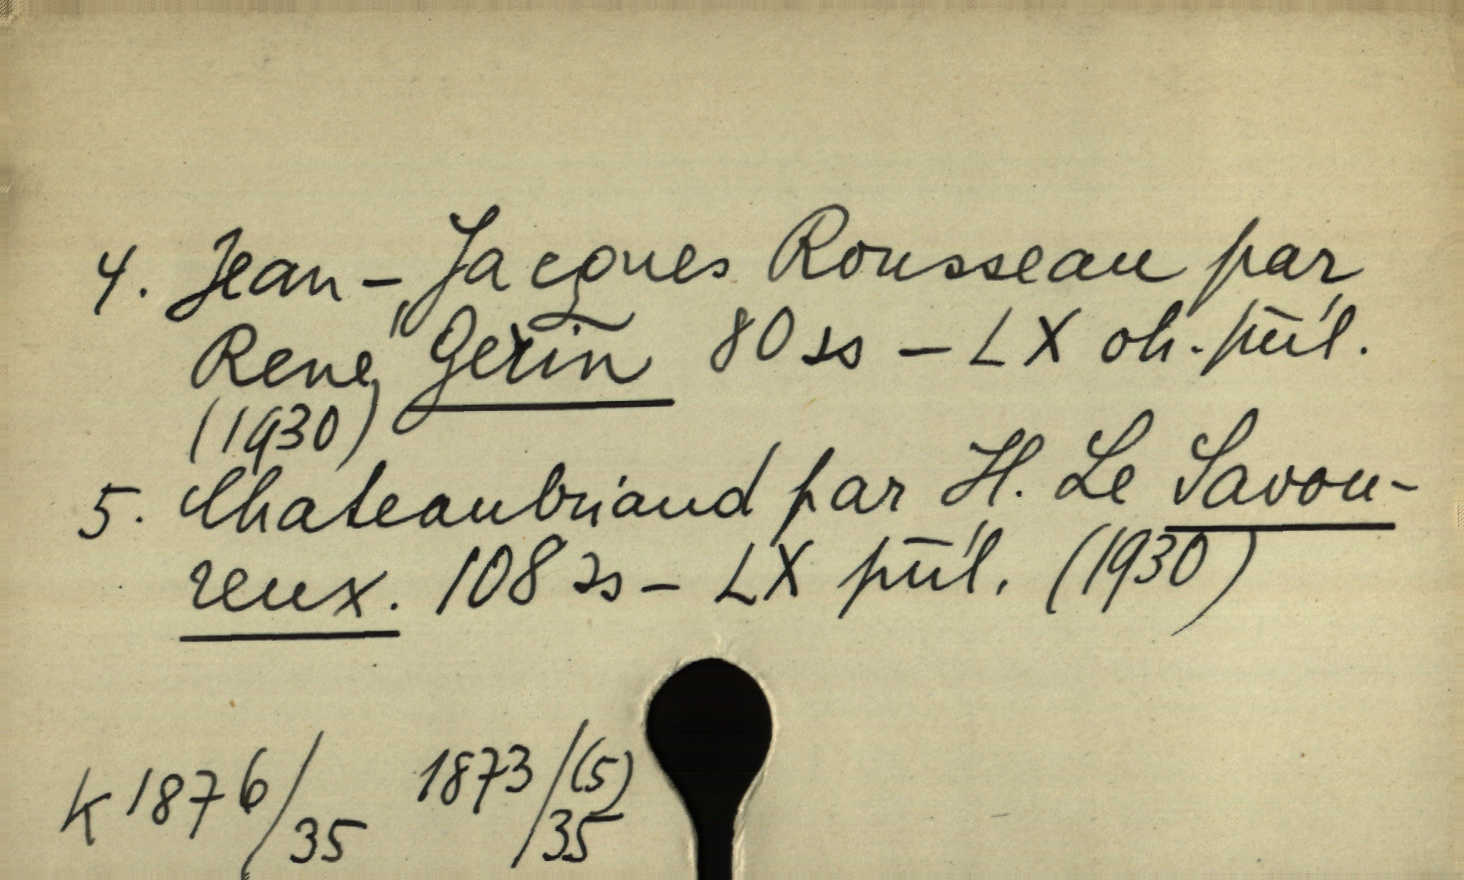 4. Jean-Jacques Rousseau par
René Gérin 80 ss – LX oh. píil.
(1930)
5. Chateaubriand par H. Le Savou-
reux. 108 ss – LX píil. (1930)
K 1876/35 1873/35 (5)